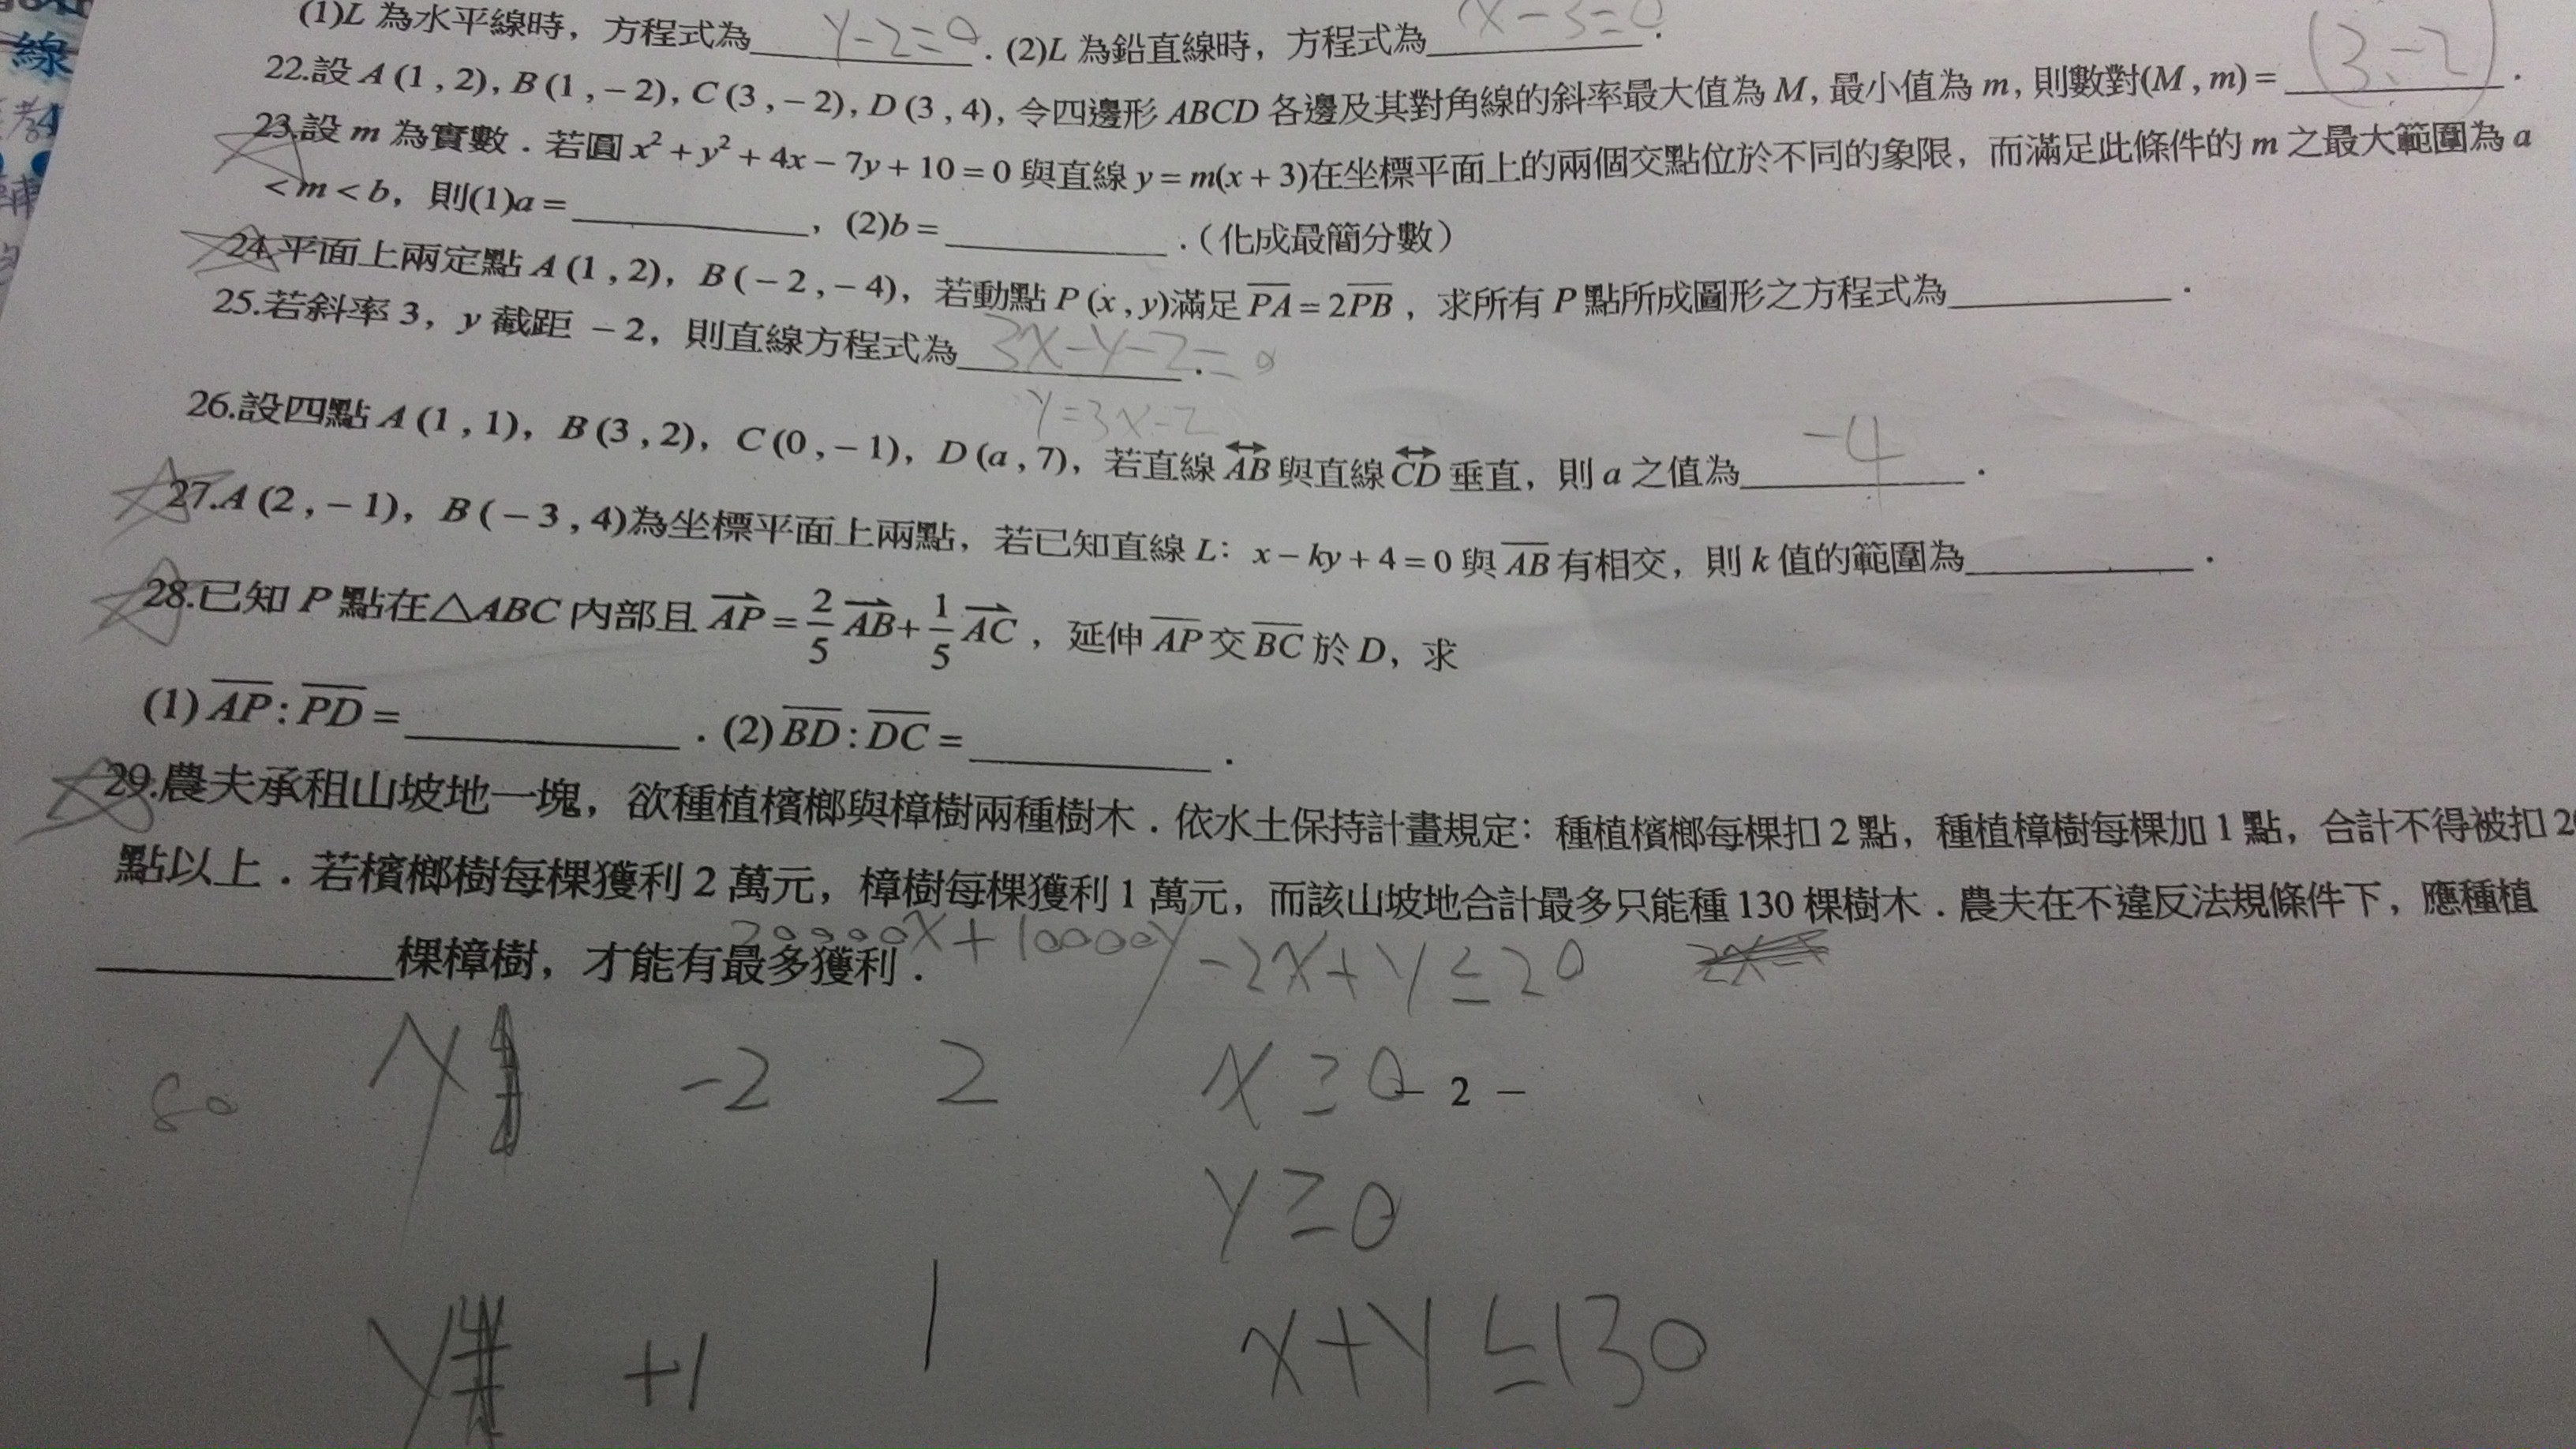 線
(1)L 為水平線時，方程式為 y-2=0 . (2)L 為鉛直線時，方程式為 x-3=0 .
22.設 A (1 , 2), B (1 , − 2), C (3 , − 2), D (3 , 4), 令四邊形 ABCD 各邊及其對角線的斜率最大值為 M, 最小值為 m, 則數對(M , m) = (3,-2) .
23.設 m 為實數．若圓 x² + y² + 4x − 7y + 10 = 0 與直線 y = m(x + 3)在坐標平面上的兩個交點位於不同的象限，而滿足此條件的 m 之最大範圍為 a
< m < b，則(1)a = ，(2)b = .（化成最簡分數）
24.平面上兩定點 A (1 , 2)，B ( − 2 , − 4)，若動點 P (x , y)滿足 PA = 2PB，求所有 P 點所成圖形之方程式為 .
25.若斜率 3，y 截距 − 2，則直線方程式為 3x-y-2=0 .
y=3x-2
26.設四點 A (1 , 1)，B (3 , 2)，C (0 , − 1)，D (a , 7)，若直線 AB 與直線 CD 垂直，則 a 之值為 -4 .
27.A (2 , − 1)，B ( − 3 , 4)為坐標平面上兩點，若已知直線 L：x − ky + 4 = 0 與 AB 有相交，則 k 值的範圍為 .
28.已知 P 點在△ABC 內部且 AP = 2/5 AB + 1/5 AC，延伸 AP 交 BC 於 D，求
(1) AP : PD = . (2) BD : DC = .
29.農夫承租山坡地一塊，欲種植檳榔與樟樹兩種樹木．依水土保持計畫規定：種植檳榔每棵扣 2 點，種植樟樹每棵加 1 點，合計不得被扣 20
點以上．若檳榔樹每棵獲利 2 萬元，樟樹每棵獲利 1 萬元，而該山坡地合計最多只能種 130 棵樹木．農夫在不違反法規條件下，應種植
棵樟樹，才能有最多獲利．
20000x+10000y
-2x+y≤20
80 x -2 2 x≥0
− 2 −
y≥0
y +1 1 x+y≤130